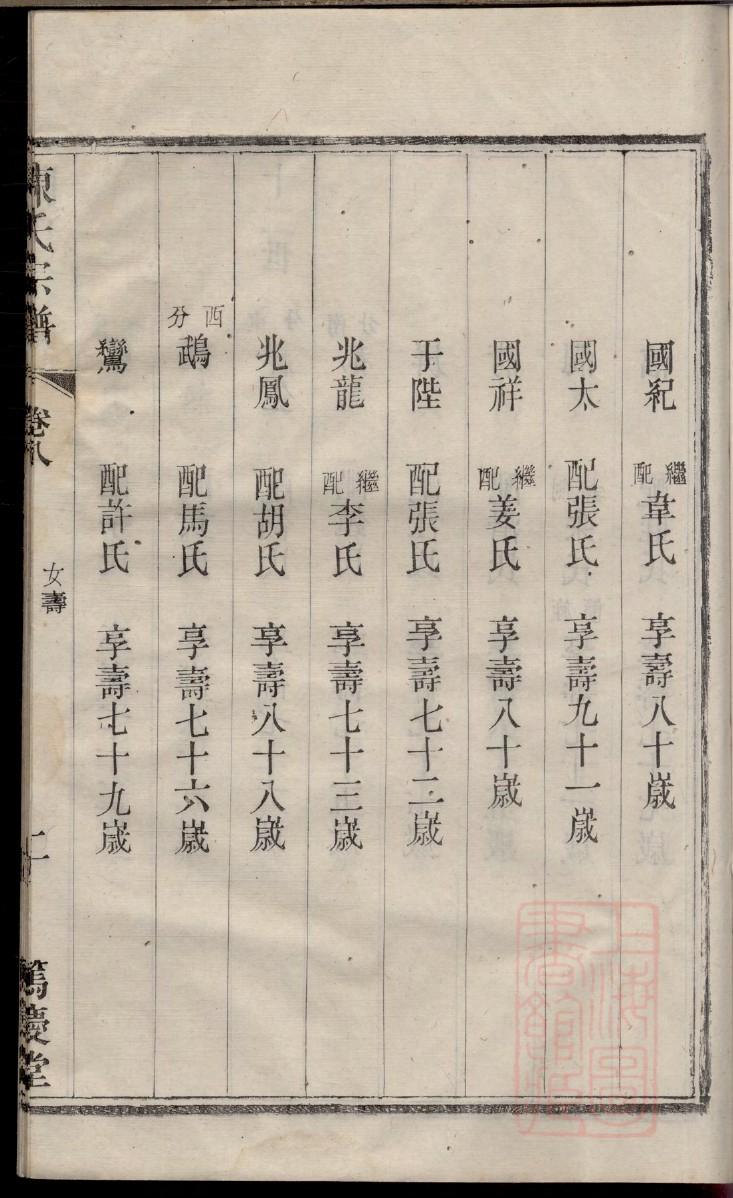 國紀 繼配韋氏 享壽八十歲
國太 配張氏 享壽九十一歲
國祥 繼配姜氏 享壽八十歲
于陛 配張氏 享壽七十二歲
兆龍 繼配李氏 享壽七十三歲
兆鳳 配胡氏 享壽八十八歲
西分 鵡 配馬氏 享壽七十六歲
鸞 配許氏 享壽七十九歲
陳氏宗譜 卷八 女壽 二 篤慶堂
上海圖書館藏